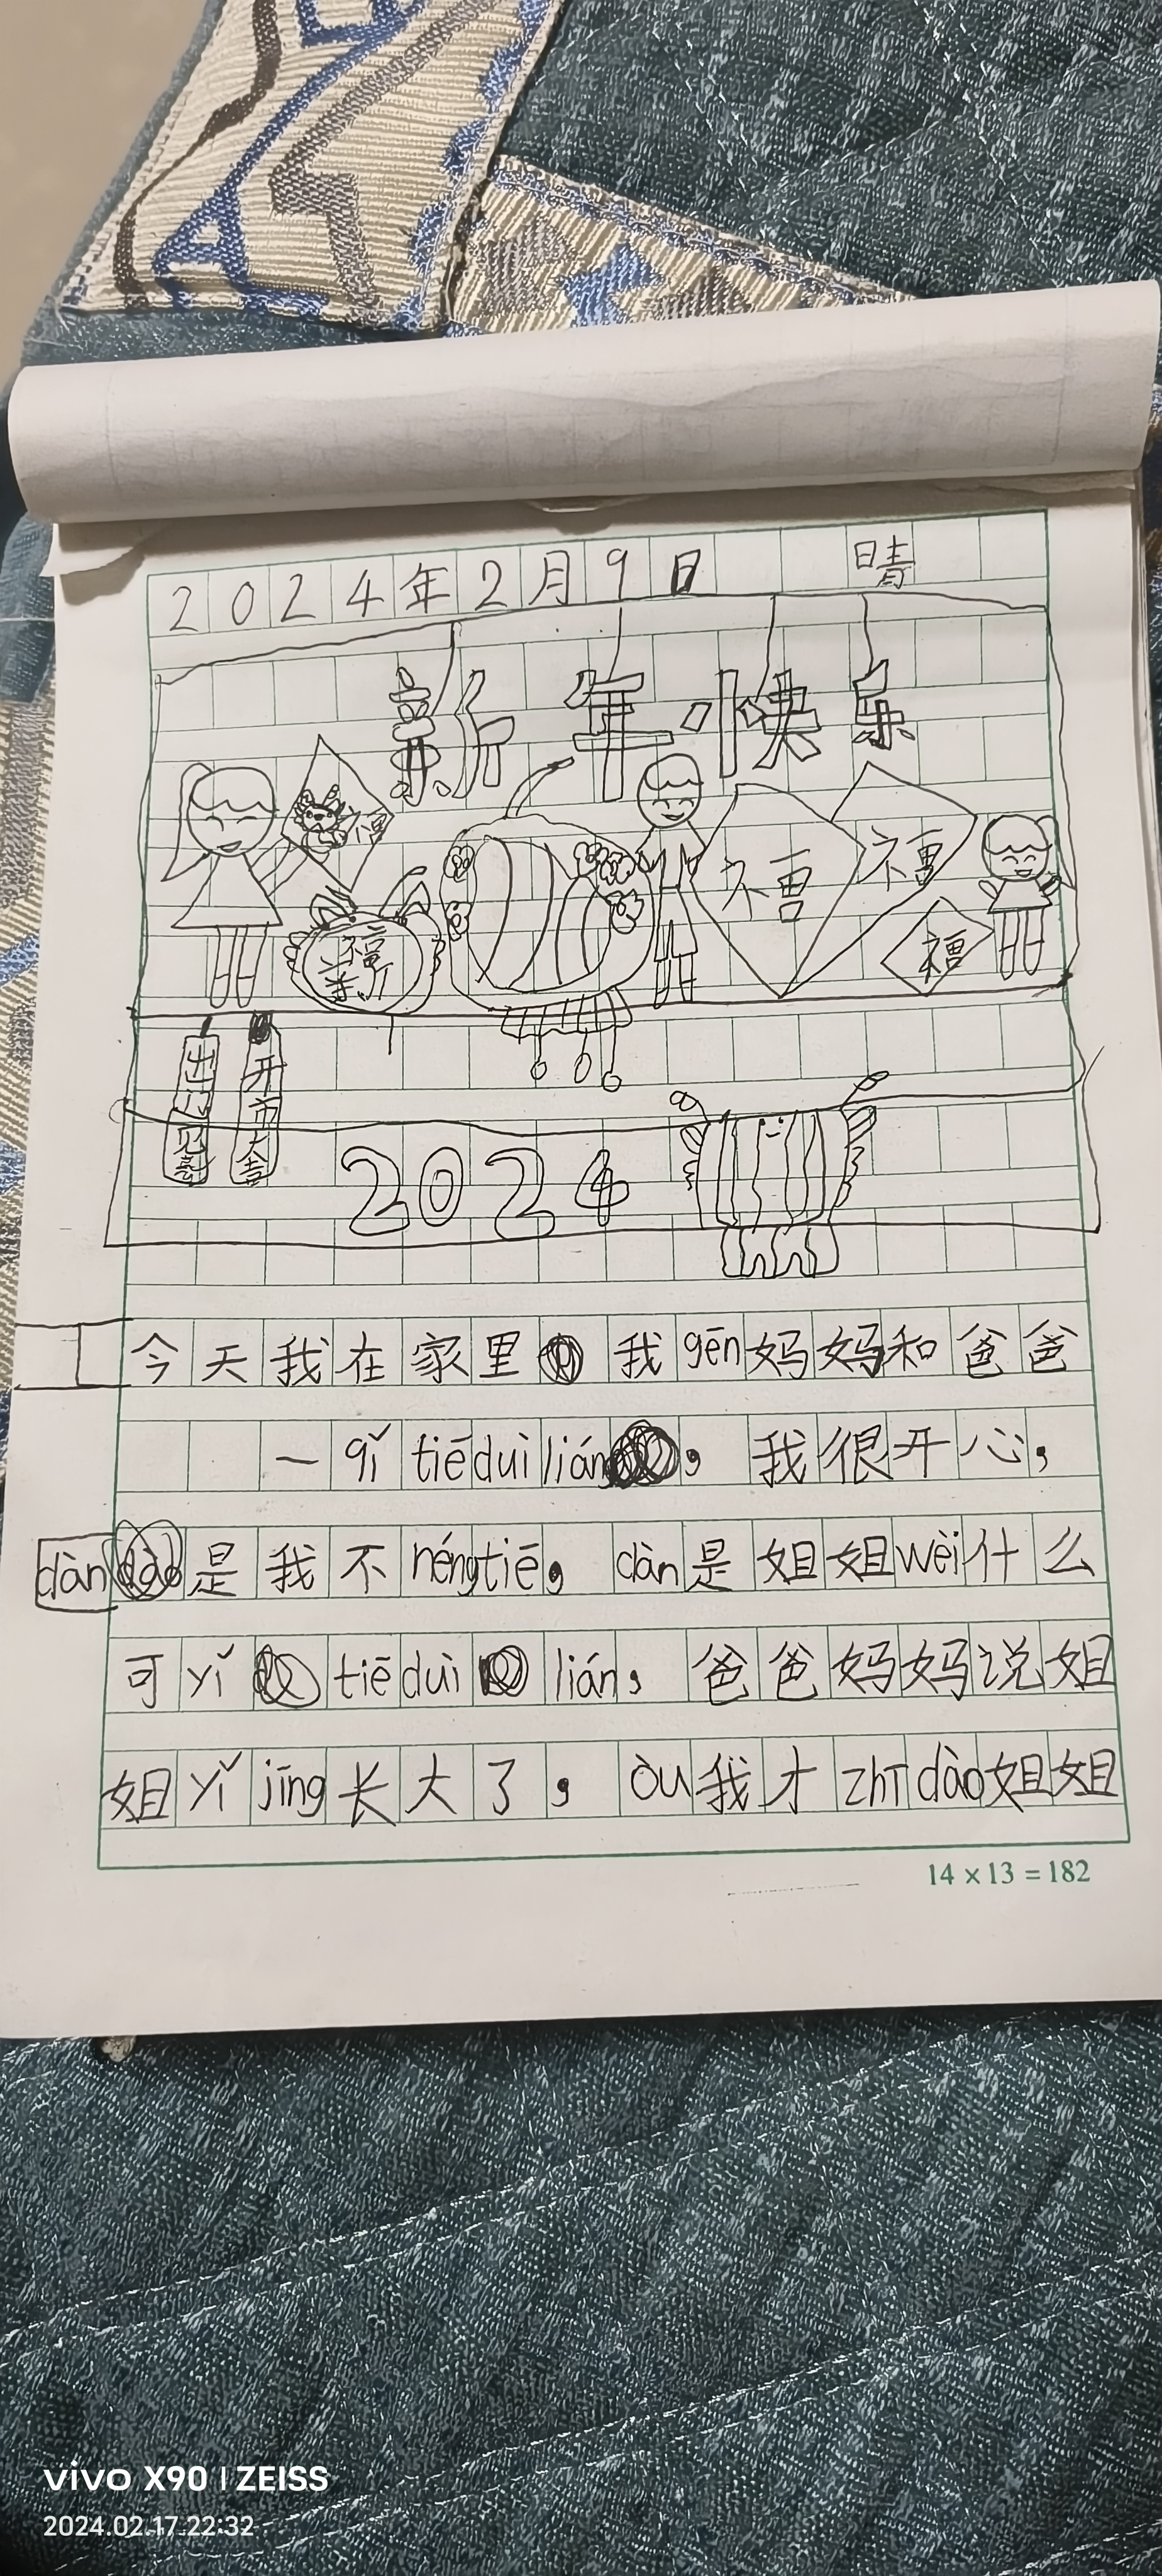 2024年2月9日 晴
新年快乐
福
福 福
福
出门见喜
开市大吉
2024
今天我在家里我gēn妈妈和爸爸
一qǐtiēduìlián，我很开心，
dàn是我不néngtiē，dàn是姐姐wèi什么
可yǐtiēduìlián，爸爸妈妈说姐
姐yǐjīng长大了，òu我才zhīdào姐姐
14×13=182
vivo X90 | ZEISS
2024.02.17 22:32